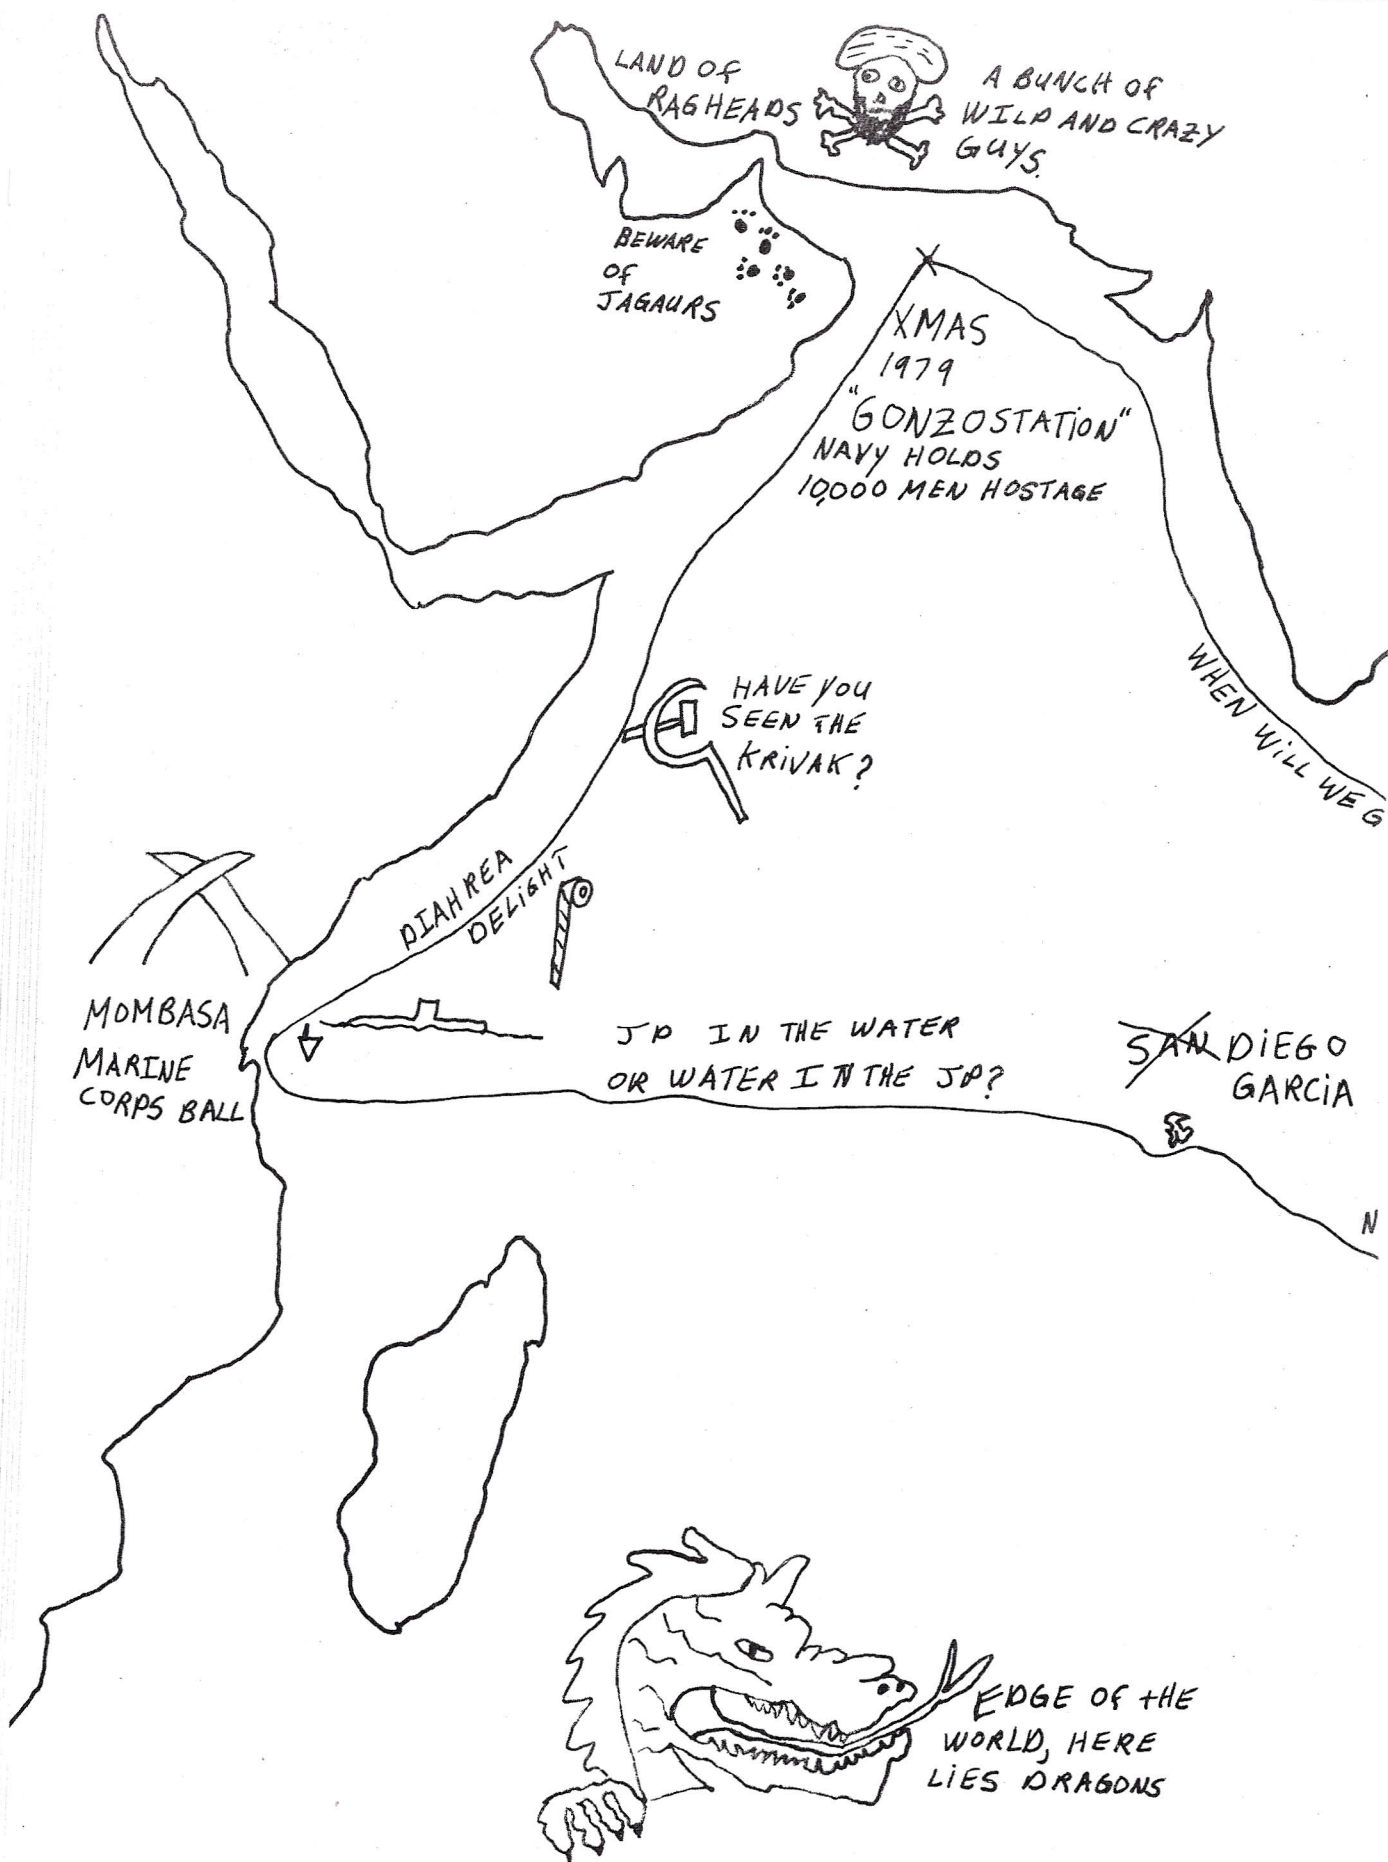 LAND OF
RAGHEADS
A BUNCH OF
WILD AND CRAZY
GUYS.
BEWARE
OF
JAGAURS
XMAS
1979
"GONZOSTATION"
NAVY HOLDS
10,000 MEN HOSTAGE
WHEN WILL WE G
HAVE YOU
SEEN THE
KRIVAK?
DIAHREA
DELIGHT
MOMBASA
MARINE
CORPS BALL
JP IN THE WATER
OR WATER IN THE JP?
SAN DIEGO
GARCIA
N
EDGE OF THE
WORLD, HERE
LIES DRAGONS